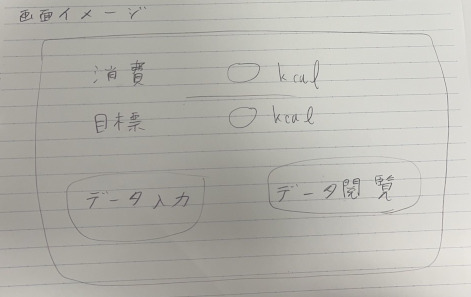 画面イメージ
消費 ○ kcal
目標 ○ kcal
データ入力 データ閲覧